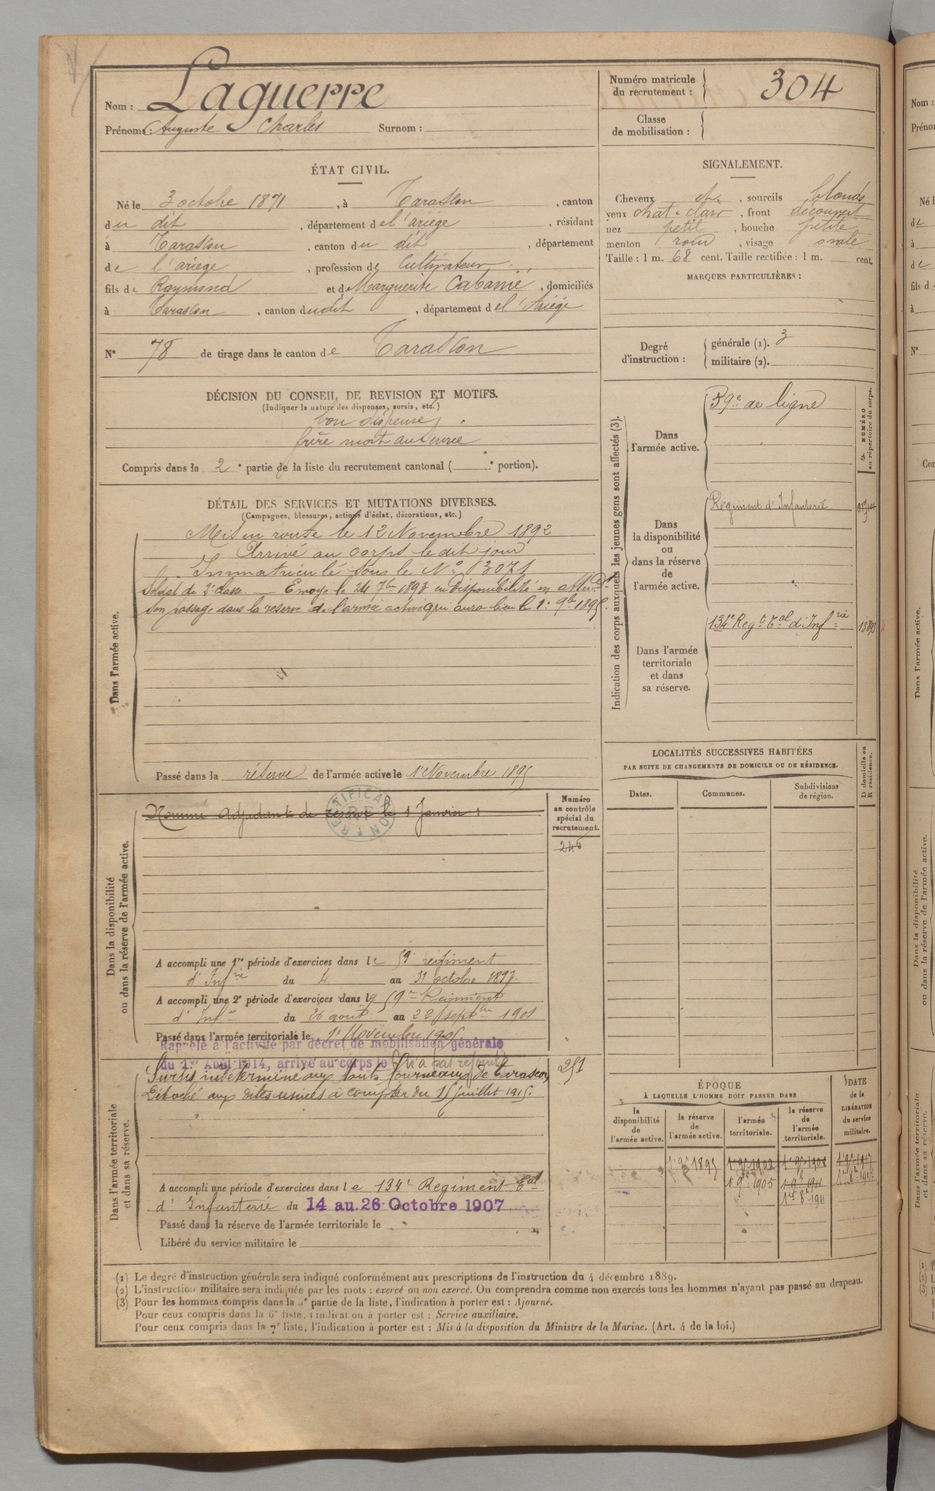 Nom : Laguerre
Prénoms : Auguste Charles Surnom :
Numéro matricule du recrutement : 304
Classe de mobilisation :
ÉTAT CIVIL.
Né le 3 octobre 1871, à Tarascon, canton
du dit, département de l'ariège, résidant
à Tarascon, canton du dit, département
de l'ariège, profession de Cultivateur
fils de Raymond et de Marguerite Cabanié, domiciliés
à Tarascon, canton dudit, département de l'Ariége
N° 78 de tirage dans le canton de Tarascon
SIGNALEMENT.
Cheveux et, sourcils blonds
yeux chat. clair, front découvert
nez petit, bouche petite
menton rond, visage ovale
Taille : 1 m. 68 cent. Taille rectifiée : 1 m. cent.
MARQUES PARTICULIÈRES :
Degré d'instruction : générale (1). 3
militaire (2).
DÉCISION DU CONSEIL DE REVISION ET MOTIFS.
(Indiquer la nature des dispenses, sursis, etc.)
bon dispensé
frère mort au service
Compris dans la 2e partie de la liste du recrutement cantonal ( e portion).
DÉTAIL DES SERVICES ET MUTATIONS DIVERSES.
(Campagnes, blessures, actions d'éclat, décorations, etc.)
Dans l'armée active.
Mis en route le 12 Novembre 1892
Arrivé au corps le dit jour
Immatriculé sous le N° 3071
Soldat de 2e classe. Envoyé le 24 7bre 1893 en disponibilité en attendt
son passage dans la réserve de l'armée active qui aura lieu le 1er 9bre 1895.
Passé dans la réserve de l'armée active le 1er Novembre 1895
Dans la disponibilité ou dans la réserve de l'armée active.
Nommé Adjudant de réserve le 1 Janvier 1
RECTIFICATION
Numéro au contrôle spécial du recrutement.
246
A accompli une 1re période d'exercices dans le 59e régiment
d'Infrie du 4 au 31 octobre 1897
A accompli une 2e période d'exercices dans le 59e Régiment
d'Infie du 26 août au 22 septbre 1901
Passé dans l'armée territoriale le 1er Novembre 1905
Rappelé à l'activité par décret de mobilisation générale
du 1er Août 1914, arrivé au corps le (n'a pas rejoint)
Dans l'armée territoriale et dans sa réserve.
Sursis indéterminé aux hauts fourneaux de Tarascon
aux dites usines à compter du 15 juillet 1915.
251
A accompli une période d'exercices dans le 134e Régiment Tal
d'Infanterie du 14 au 26 Octobre 1907
Passé dans la réserve de l'armée territoriale le
Libéré du service militaire le
Indication des corps auxquels les jeunes gens sont affectés (3).
NUMÉRO au répertoire du corps.
Dans l'armée active.
59e de ligne
Dans la disponibilité ou dans la réserve de l'armée active.
Régiment d'Infanterie
Dans l'armée territoriale et dans sa réserve.
134e Regt Tal d'Infrie
LOCALITÉS SUCCESSIVES HABITÉES
PAR SUITE DE CHANGEMENTS DE DOMICILE OU DE RÉSIDENCE.
Dates. Communes. Subdivisions de région. D domicile ou R résidence.
ÉPOQUE
À LAQUELLE L'HOMME DOIT PASSER DANS
la disponibilité de l'armée active.
la réserve de l'armée active.
l'armée territoriale.
la réserve de l'armée territoriale.
DATE de la LIBÉRATION du service militaire.
1er 9bre 1895
1er 9bre 1905
1er 8bre 1911
(1) Le degré d'instruction générale sera indiqué conformément aux prescriptions de l'instruction du 4 décembre 1889.
(2) L'instruction militaire sera indiquée par les mots : exercé ou non exercé. On comprendra comme non exercés tous les hommes n'ayant pas passé au drapeau.
(3) Pour les hommes compris dans la 5e partie de la liste, l'indication à porter est : Ajourné.
Pour ceux compris dans la 6e liste, l'indication à porter est : Service auxiliaire.
Pour ceux compris dans la 7e liste, l'indication à porter est : Mis à la disposition du Ministre de la Marine. (Art. 4 de la loi.)